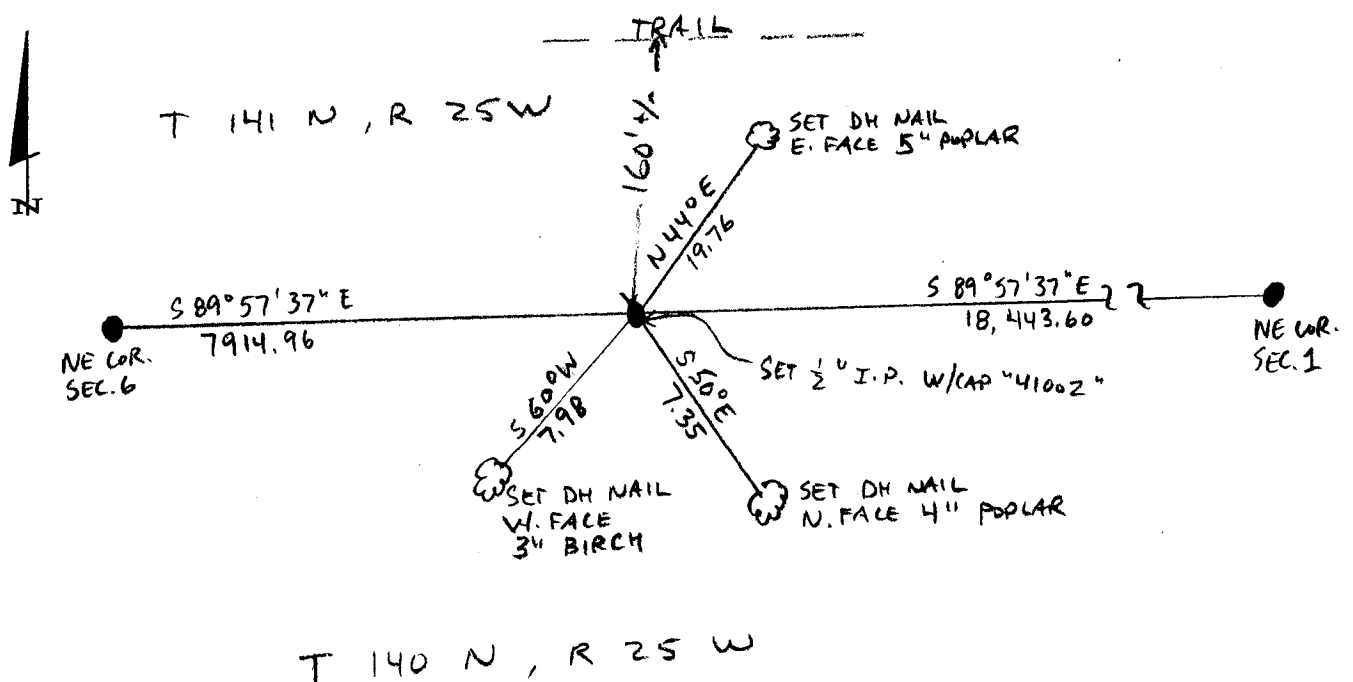 TRAIL
T 141 N, R 25W
160' +/-
SET DH NAIL
E. FACE 5" POPLAR
N
N 44° E
19.76
S 89° 57' 37" E
7914.96
S 89° 57' 37" E
18,443.60
NE COR.
SEC. 6
NE COR.
SEC. 1
SET 1/2" I.P. W/CAP "41002"
S 60° W
7.98
S 50° E
7.35
SET DH NAIL
W. FACE
3" BIRCH
SET DH NAIL
N. FACE 4" POPLAR
T 140 N, R 25 W